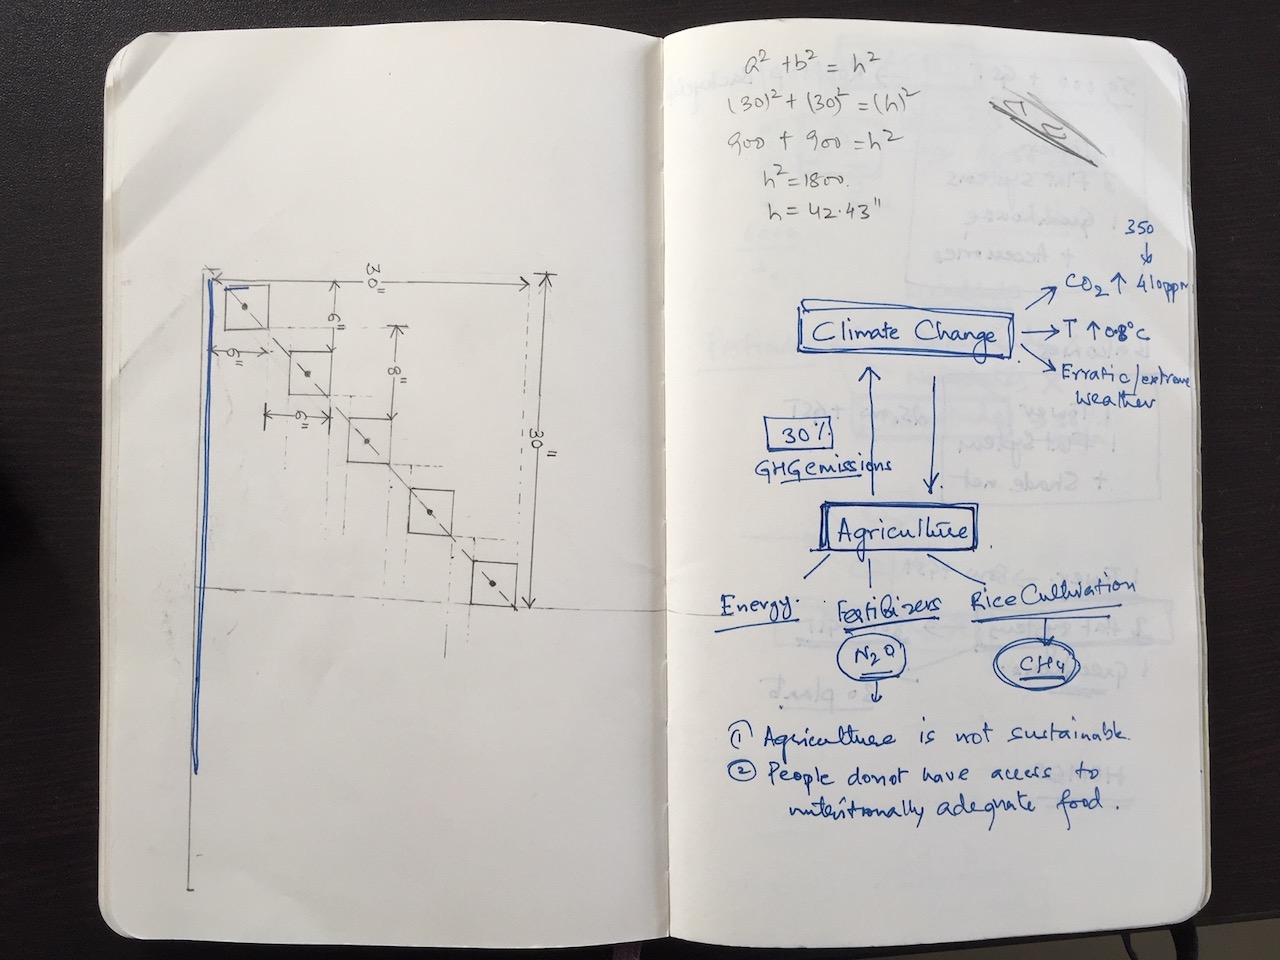 30"
6"
6"
8"
6"
30"
a² + b² = h²
(30)² + (30)² = (h)²
900 + 900 = h²
h² = 1800.
h = 42.43"
350
CO₂ ↑ 410ppm
Climate Change
T ↑ 0.8°C
Erratic/extreme
weather
30%
GHG emissions
Agriculture
Energy.
Fertilizers
Rice Cultivation
N₂O
CH₄
① Agriculture is not sustainable.
② People donot have access to
nutritionally adequate food.